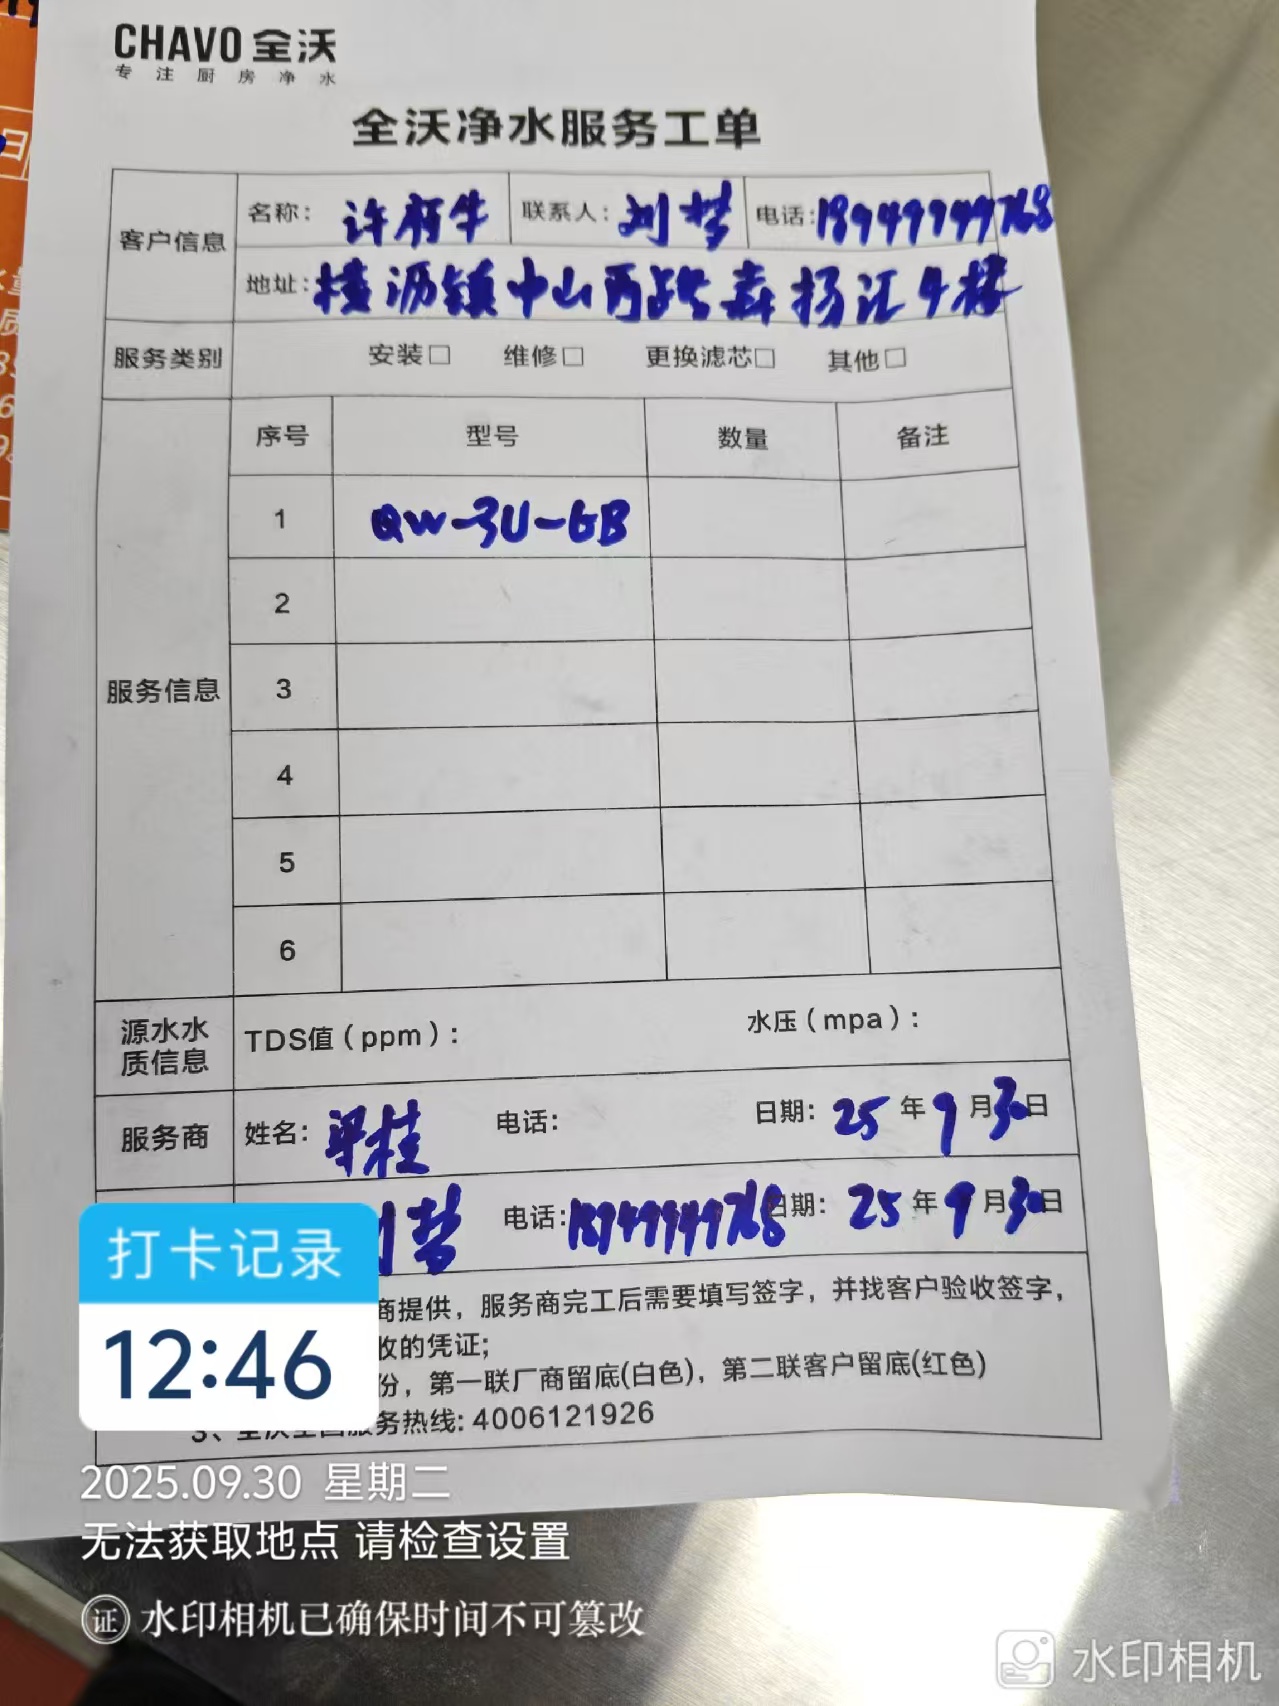 CHAVO 全沃
专注厨房净水
全沃净水服务工单
客户信息
名称：许府牛 联系人：刘梦 电话：18949949768
地址：横沥镇中山西路森扬汇4楼
服务类别 安装□ 维修□ 更换滤芯□ 其他□
服务信息
序号 型号 数量 备注
1 QW-3U-GB
2
3
4
5
6
源水水质信息 TDS值（ppm）： 水压（mpa）：
服务商 姓名： 电话： 日期：25年9月30日
梦 电话：18949949768 日期：25年9月30日
商提供，服务商完工后需要填写签字，并找客户验收签字，
收的凭证；
份，第一联厂商留底(白色)，第二联客户留底(红色)
3、全沃全国服务热线：4006121926
打卡记录
12:46
2025.09.30 星期二
无法获取地点 请检查设置
证 水印相机已确保时间不可篡改
水印相机